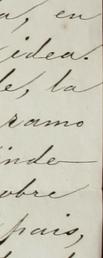 a, en
idea.
le, la
ramo
inde
obre
pais,